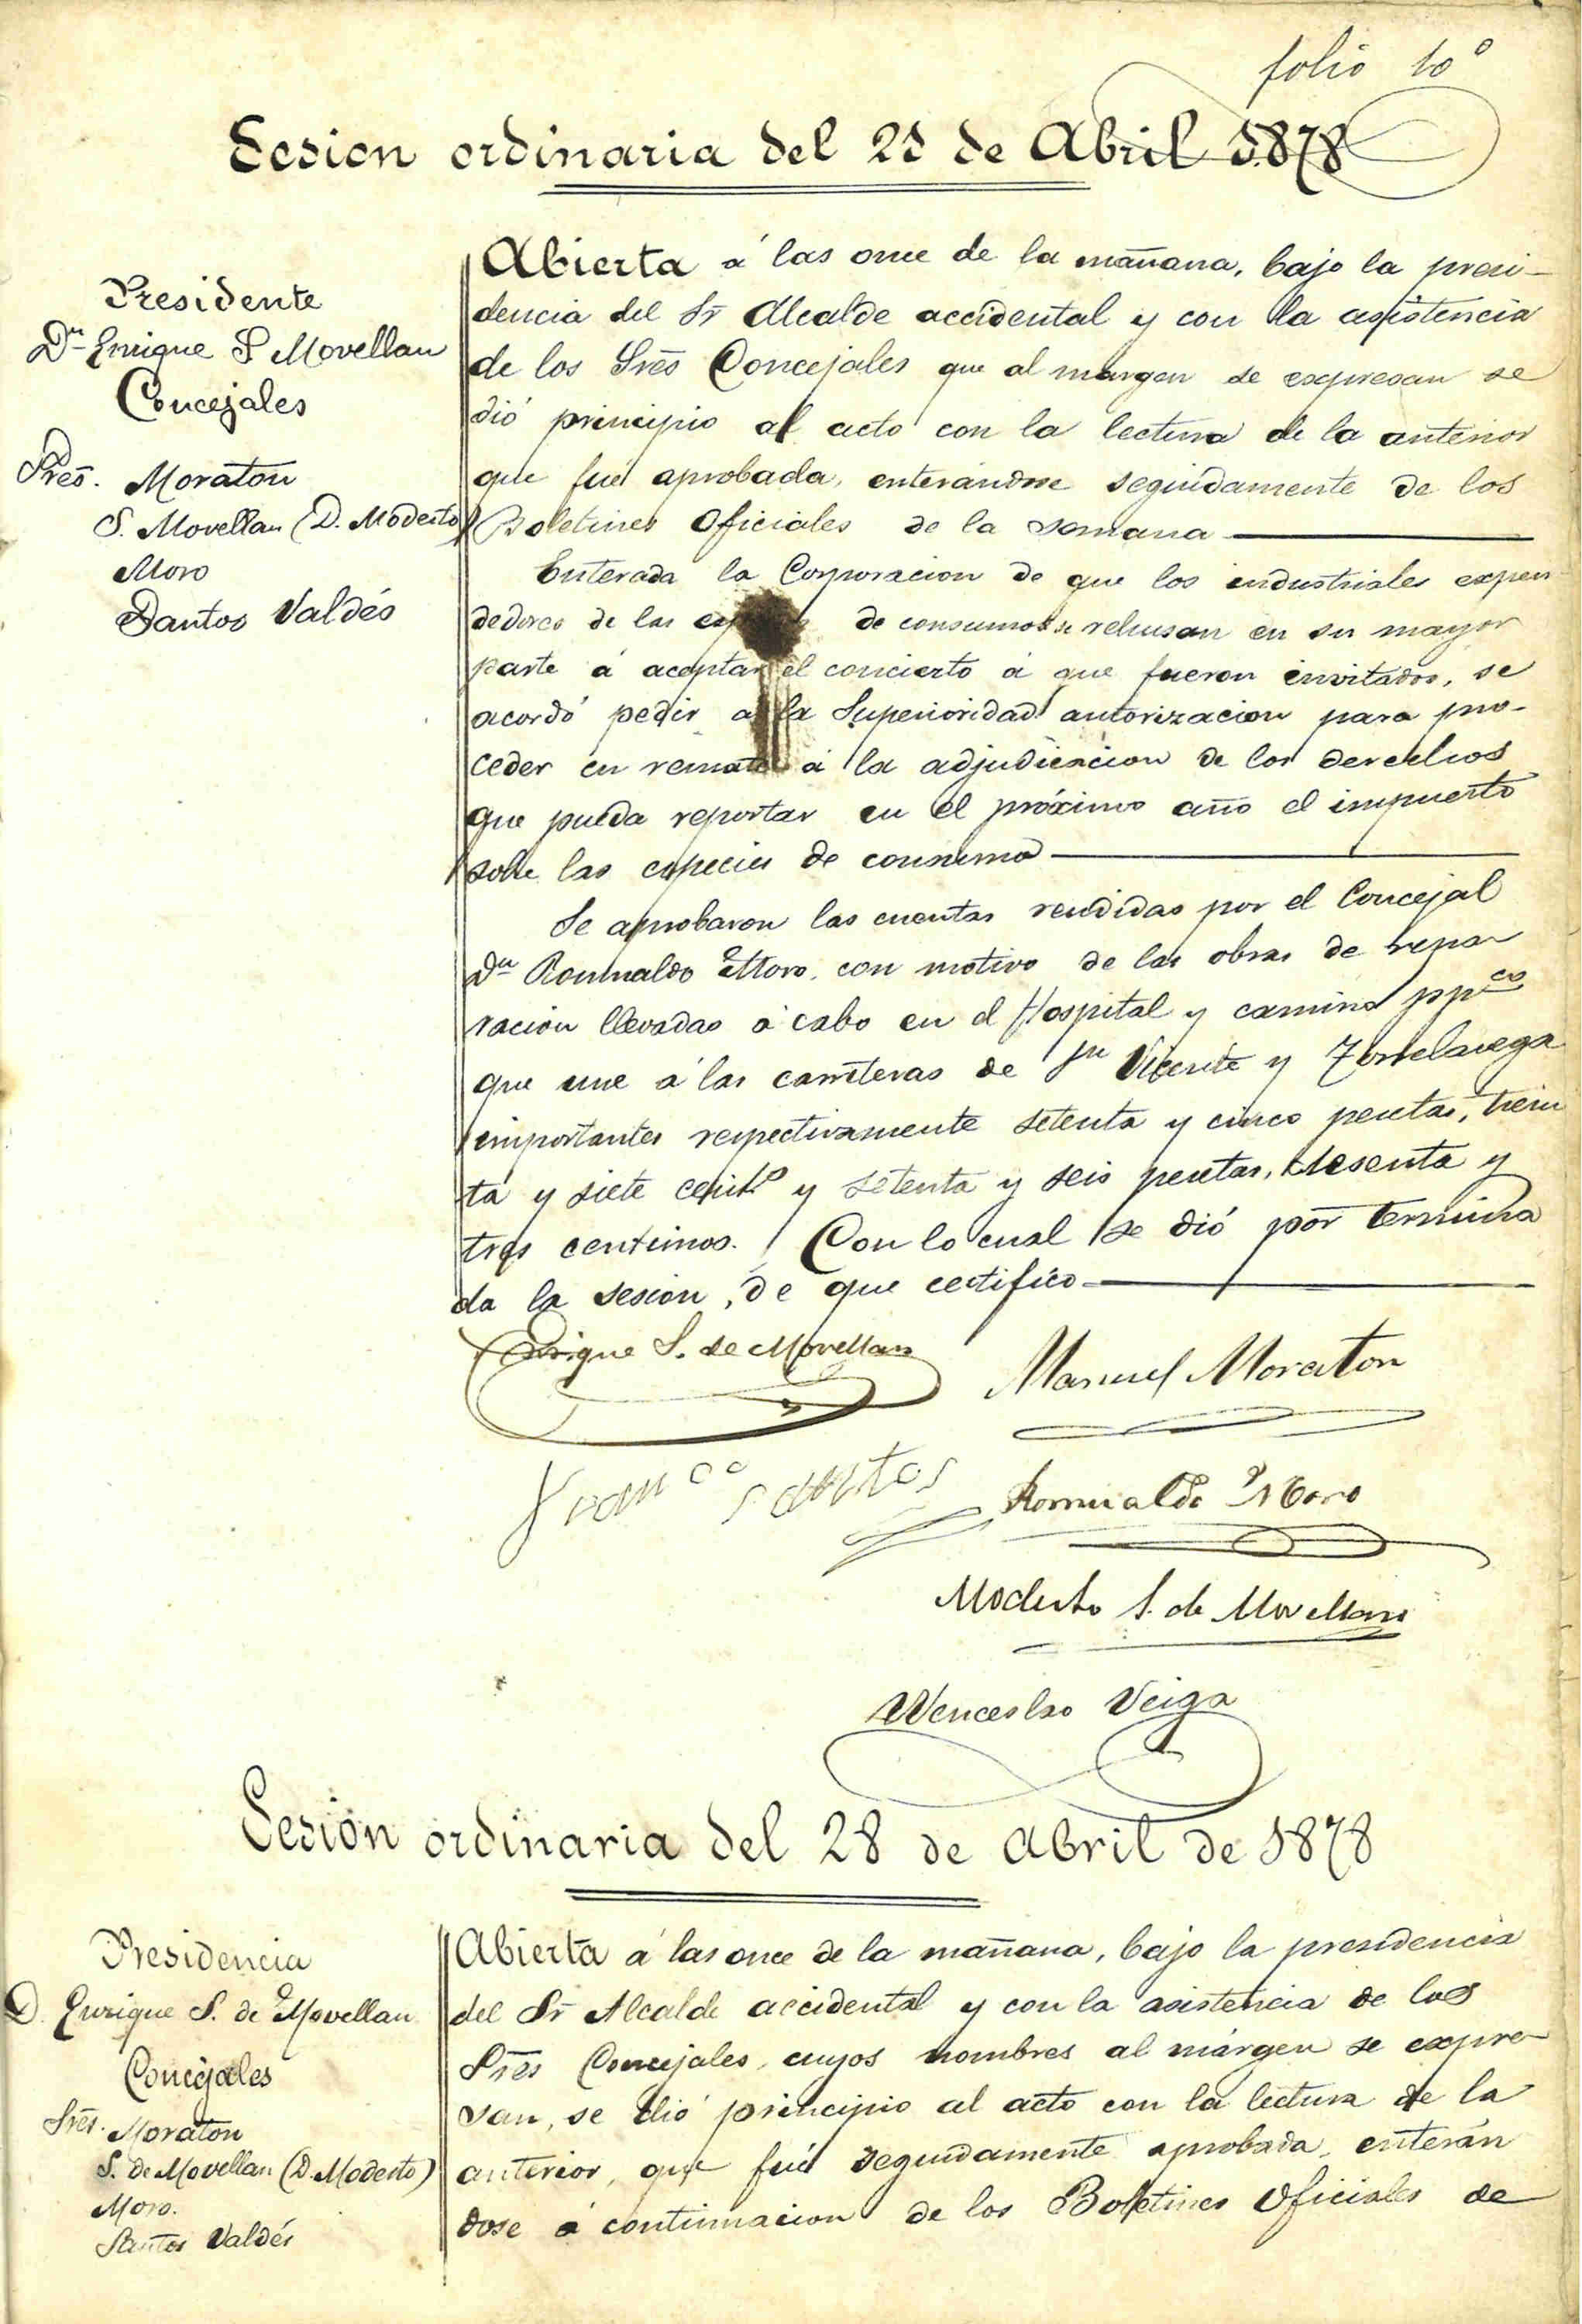 folio 10º
Sesion ordinaria del 21 de Abril 1.878
Presidente
Dn Enrique S Movellan
Concejales
Sres. Moraton
S. Movellan (D. Modesto)
Moro
Santos Valdés
Abierta á las once de la mañana, bajo la presi-
dencia del Sr Alcalde accidental y con la asistencia
de los Sres Concejales que al margen se expresan se
dió principio al acto con la lectura de la anterior
que fué aprobada, enterándose seguidamente de los
Boletines Oficiales de la semana
Enterada la Corporacion de que los industriales expen-
dedores de las de consumos se rehusan en su mayor
parte á aceptar el concierto á que fueron invitados, se
acordó pedir a la Superioridad autorizacion para pro-
ceder en remate á la adjudicacion de los derechos
que pueda reportar en el próximo año el impuesto
sobre las especies de consumo
Se aprobaron las cuentas rendidas por el Concejal
Dn Romualdo Moro, con motivo de las obras de repa-
racion llevadas á cabo en el Hospital y camino ppco
que une á las carreteras de Sn Vicente y Torrelavega
importantes respectivamente setenta y cinco pesetas, trein
ta y siete cents y setenta y seis pesetas, sesenta y
tres centimos. Con lo cual se dió por termina
da la sesion, de que certifico
Enrique S. de Movellan
Manuel Moraton
Franco Santos
Romualdo Moro
Modesto S. de Movellan
Wenceslao Veiga
Sesion ordinaria del 28 de Abril de 1878
Presidencia
D. Enrique S. de Movellan
Concejales
Sres. Moraton
S. de Movellan (D. Modesto)
Moro.
Santos Valdés
Abierta á las once de la mañana, bajo la presidencia
del Sr Alcalde accidental y con la asistencia de los
Sres Concejales, cuyos nombres al márgen se expre-
san, se dió principio al acto con la lectura de la
anterior, que fué seguidamente aprobada, enterán
dose á continuacion de los Boletines Oficiales de